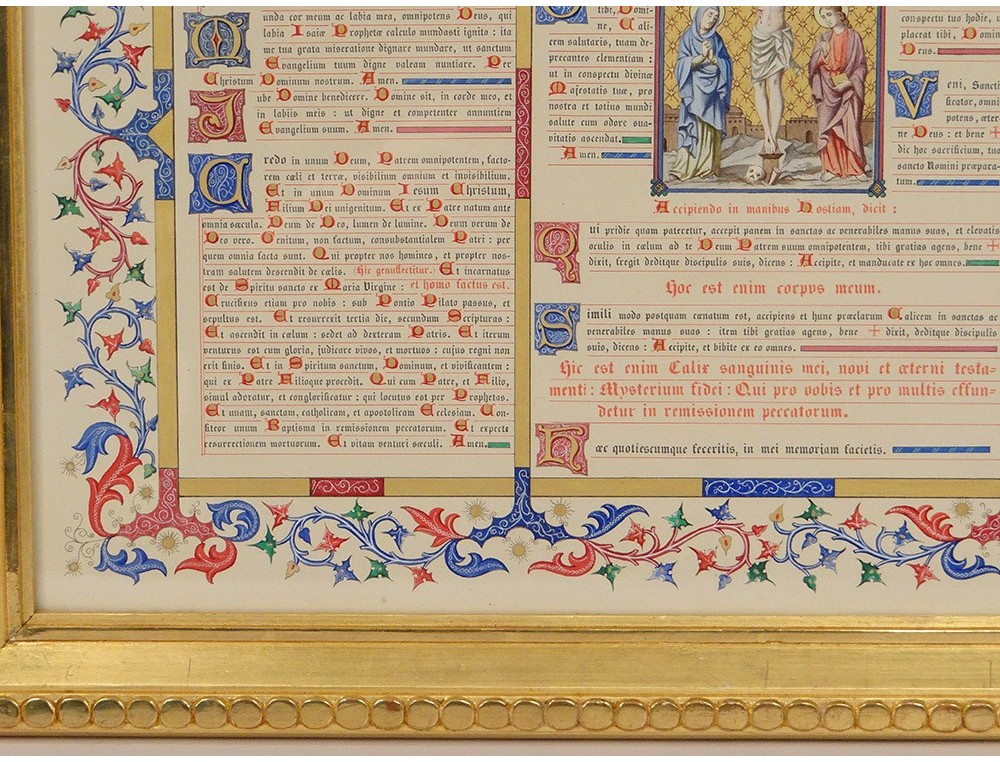 unda cor meum ac labia mea, omnipotens Deus, qui
labia Isaiæ Prophetæ calculo mundasti ignito : ita
me tua grata miseratione dignare mundare, ut sanctum
Evangelium tuum digne valeam nuntiare. Per
Christum Dominum nostrum. Amen.
Jube Domine benedicere. Domine sit, in corde meo, et
in labiis meis : ut digne et competenter annuntiem
Evangelium suum. Amen.
Credo in unum Deum, Patrem omnipotentem, facto-
rem cœli et terræ, visibilium omnium et invisibilium.
Et in unum Dominum Iesum Christum,
Filium Dei unigenitum. Et ex Patre natum ante
omnia sæcula. Deum de Deo, lumen de lumine. Deum verum de
Deo vero. Genitum, non factum, consubstantialem Patri : per
quem omnia facta sunt. Qui propter nos homines, et propter nos-
tram salutem descendit de cælis. (Hic genuflectitur. Et incarnatus
est de Spiritu sancto ex Maria Virgine : et homo factus est.
Crucifixus etiam pro nobis : sub Pontio Pilato passus, et
sepultus est. Et resurrexit tertia die, secundum Scripturas :
Et ascendit in cœlum : sedet ad dexteram Patris. Et iterum
venturus est cum gloria, judicare vivos, et mortuos : cujus regni non
erit finis. Et in Spiritum sanctum, Dominum, et vivificantem :
qui ex Patre Filioque procedit. Qui cum Patre, et Filio,
simul adoratur, et conglorificatur : qui locutus est per Prophetas.
Et unam, sanctam, catholicam, et apostolicam Ecclesiam. Con-
fiteor unum Baptisma in remissionem peccatorum. Et expecto
resurrectionem mortuorum. Et vitam venturi sæculi. Amen.
tibi, Domi-
ne, Cali-
cem salutaris, tuam de-
precantes clementiam :
ut in conspectu divinæ
Majestatis tuæ, pro
nostra et totius mundi
salute cum odore sua-
vitatis ascendat.
Amen.
conspectu tuo hodie,
placeat tibi, Domin
Deus.
Veni, Sancti
ficator, omni
potens, æter-
ne Deus : et bene +
dic hoc sacrificium, tuo
sancto Nomini præpara-
tum.
Accipiendo in manibus Hostiam, dicit :
Qui pridie quam pateretur, accepit panem in sanctas ac venerabiles manus suas, et elevatis
oculis in cœlum ad te Deum Patrem suum omnipotentem, tibi gratias agens, bene +
dixit, fregit deditque discipulis suis, dicens : Accipite, et manducate ex hoc omnes.
Hoc est enim corpus meum.
Simili modo postquam cœnatum est, accipiens et hunc præclarum Calicem in sanctas ac
venerabiles manus suas : item tibi gratias agens, bene + dixit, deditque discipulis
suis, dicens : Accipite, et bibite ex eo omnes.
Hic est enim Calix sanguinis mei, novi et æterni testa-
menti : Mysterium fidei : Qui pro vobis et pro multis effun-
detur in remissionem peccatorum.
Hæc quotiescumque feceritis, in mei memoriam facietis.